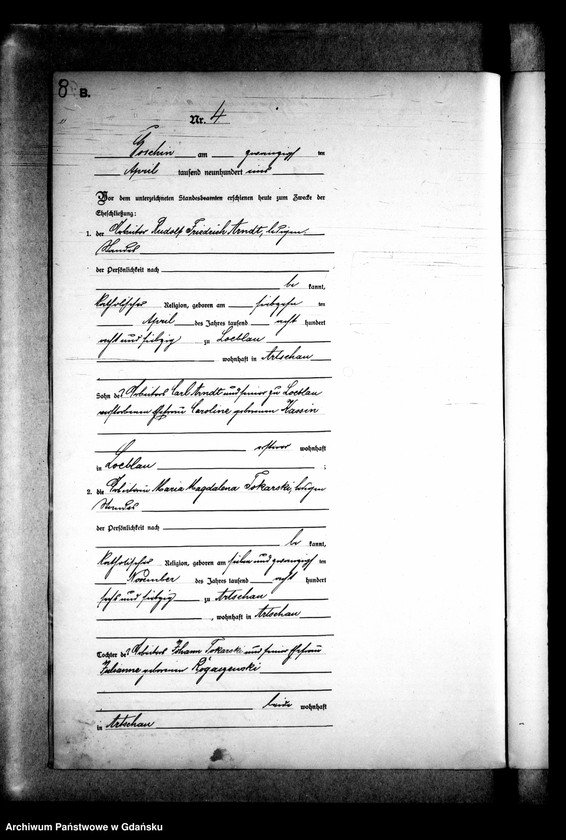 8 B.
Nr. 4
Goschin am zwanzigsten
April tausend neunhundert und
Vor dem unterzeichneten Standesbeamten erschienen heute zum Zwecke der
Eheschließung:
1. der Arbeiter Rudolf Friedrich Arndt, ledigen
Standes
der Persönlichkeit nach
be kannt,
katholischer Religion, geboren am siebzehn ten
April des Jahres tausend acht hundert
acht und siebzig zu Loeblau
wohnhaft in Artschau
Sohn des Arbeiters Carl Arndt und seiner zu Loeblau
verstorbenen Ehefrau Caroline geborenen Hassin
ersterer wohnhaft
in Loeblau ;
2. die Arbeiterin Maria Magdalena Tokarski, ledigen
Standes
der Persönlichkeit nach
be kannt,
katholischer Religion, geboren am sieben und zwanzigsten
November des Jahres tausend acht hundert
sechs und siebzig zu Artschau
, wohnhaft in Artschau
Tochter des Arbeiters Johann Tokarski und seiner Ehefrau
Julianne geborenen Rogaczewski
beide wohnhaft
in Artschau
Archiwum Państwowe w Gdańsku